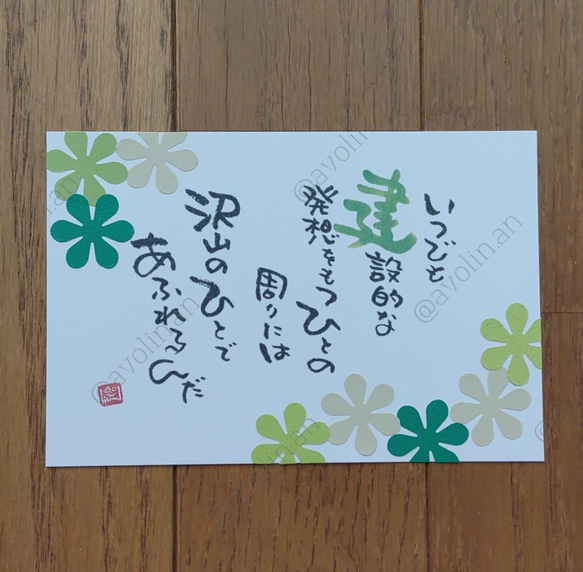 いつでも
建設的な
発想をもつひとの
周りには
沢山のひとで
あふれるんだ
@avolin.an
@avolin.an
@avolinan
@avolinan